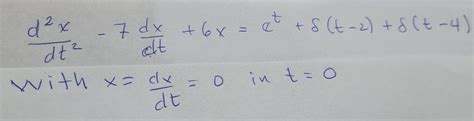 d²x/dt² - 7 dx/dt + 6x = e^t + δ(t-2) + δ(t-4)
With x = dx/dt = 0 in t = 0